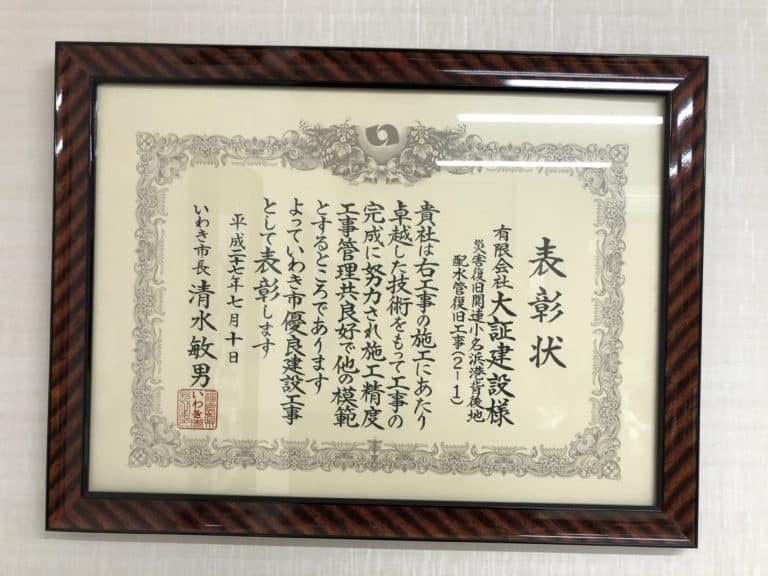 表彰状
有限会社 大証建設様
災害復旧関連小名浜港背後地
配水管復旧工事(2-1)
貴社は右工事の施工にあたり
卓越した技術をもって工事の
完成に努力され施工精度
工事管理共良好で他の模範
とするところであります
よっていわき市優良建設工事
として表彰します
平成二十七年七月十日
いわき市長 清水敏男